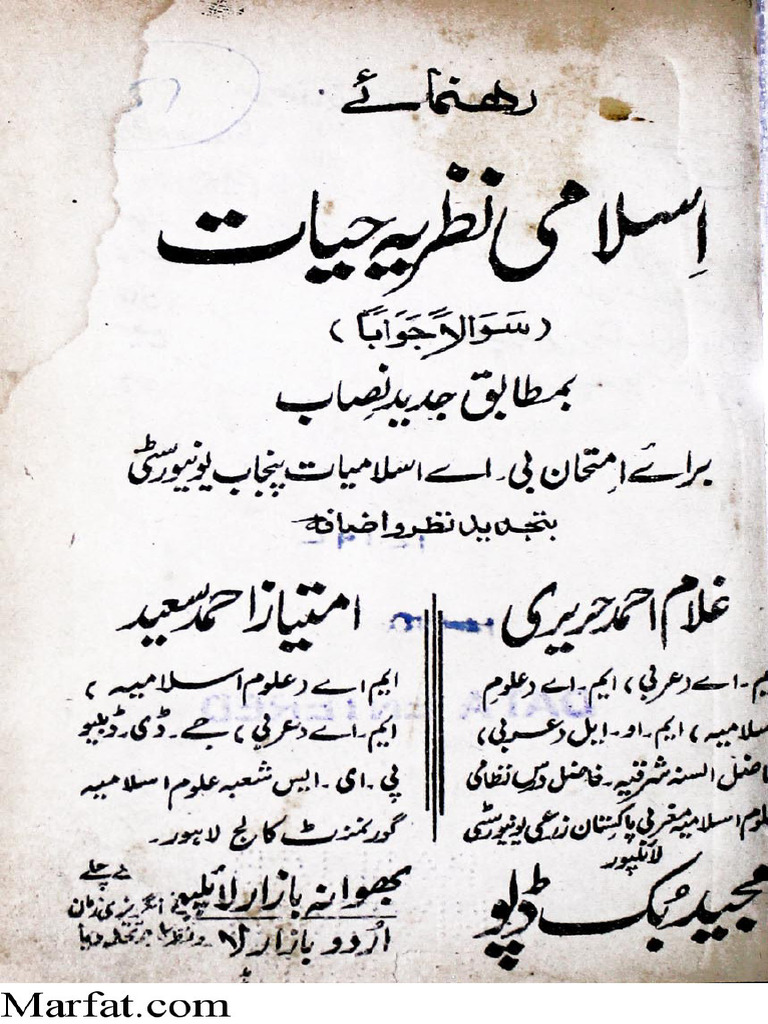 رهنمائے
اِسلامی نظریہ حیات
(سَوَالاً جَوَاباً)
بمطابق جدید نِصاب
برائے اِمتحان بی۔اے اسلامیات پنجاب یونیورسٹی
بتجدید نظر و اضافہ
غلام احمد حریری
ایم۔اے (عربی)، ایم۔اے (علومِ
اسلامیہ)، ایم۔او۔ایل (عربی)،
فاضل السنہ شرقیہ۔ فاضل درس نظامی
علوم اسلامیہ مغربی پاکستان زرعی یونیورسٹی
لائلپور
امتیاز احمد سعید
ایم اے (علوم اسلامیہ)،
ایم۔اے (عربی)، جے۔ڈی۔ڈبلیو
پی۔ای۔ایس شعبہ علوم اسلامیہ
گورنمنٹ کالج لاہور۔
مجید بُک ڈپو
بھوانہ بازار لائلپو
اُردو بازار لا
DATA ENTERED
Marfat.com